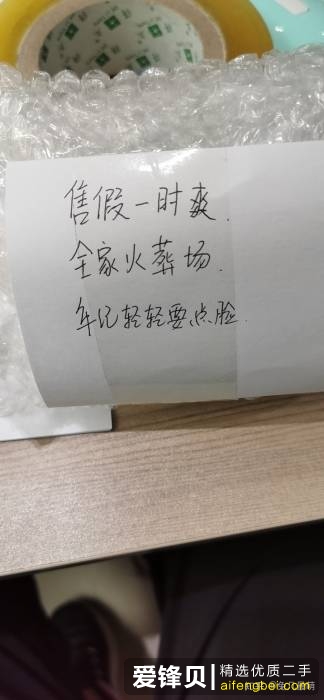 售假一时爽.
全家火葬场.
年纪轻轻要点脸.
爱锋贝
精选优质二手
aifengbe.com